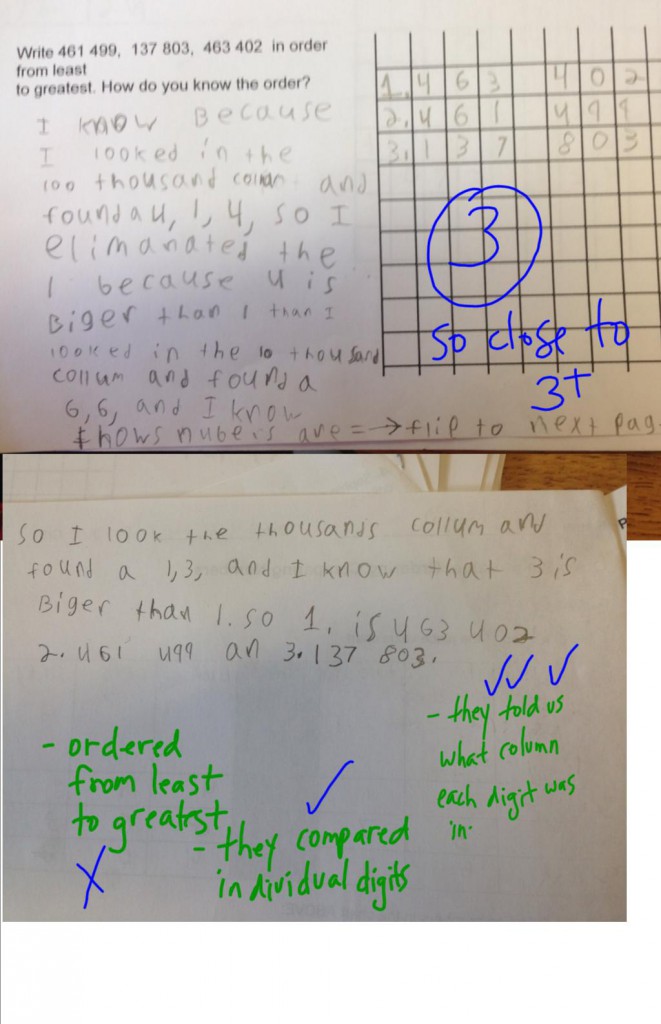 Write 461 499, 137 803, 463 402 in order
from least
to greatest. How do you know the order?
I know Because
I looked in the
100 thousand colman and
found a 4, 1, 4, so I
elimanated the
1 because 4 is
Biger than 1 than I
looked in the 10 thousand
collum and found a
6, 6, and I know
thows nubers are = → flip to next pag
1. 4 6 3 4 0 2
2. 4 6 1 4 9 9
3. 1 3 7 8 0 3
3
so close to
3+
so I look the thousands collum and
found a 1,3, and I know that 3 is
Biger than 1. so 1. is 463 402
2. 461 499 an 3. 137 803.
- ordered
from least
to greatest
X
✓
- they compared
individual digits
✓✓ ✓
- they told us
what column
each digit was
in.